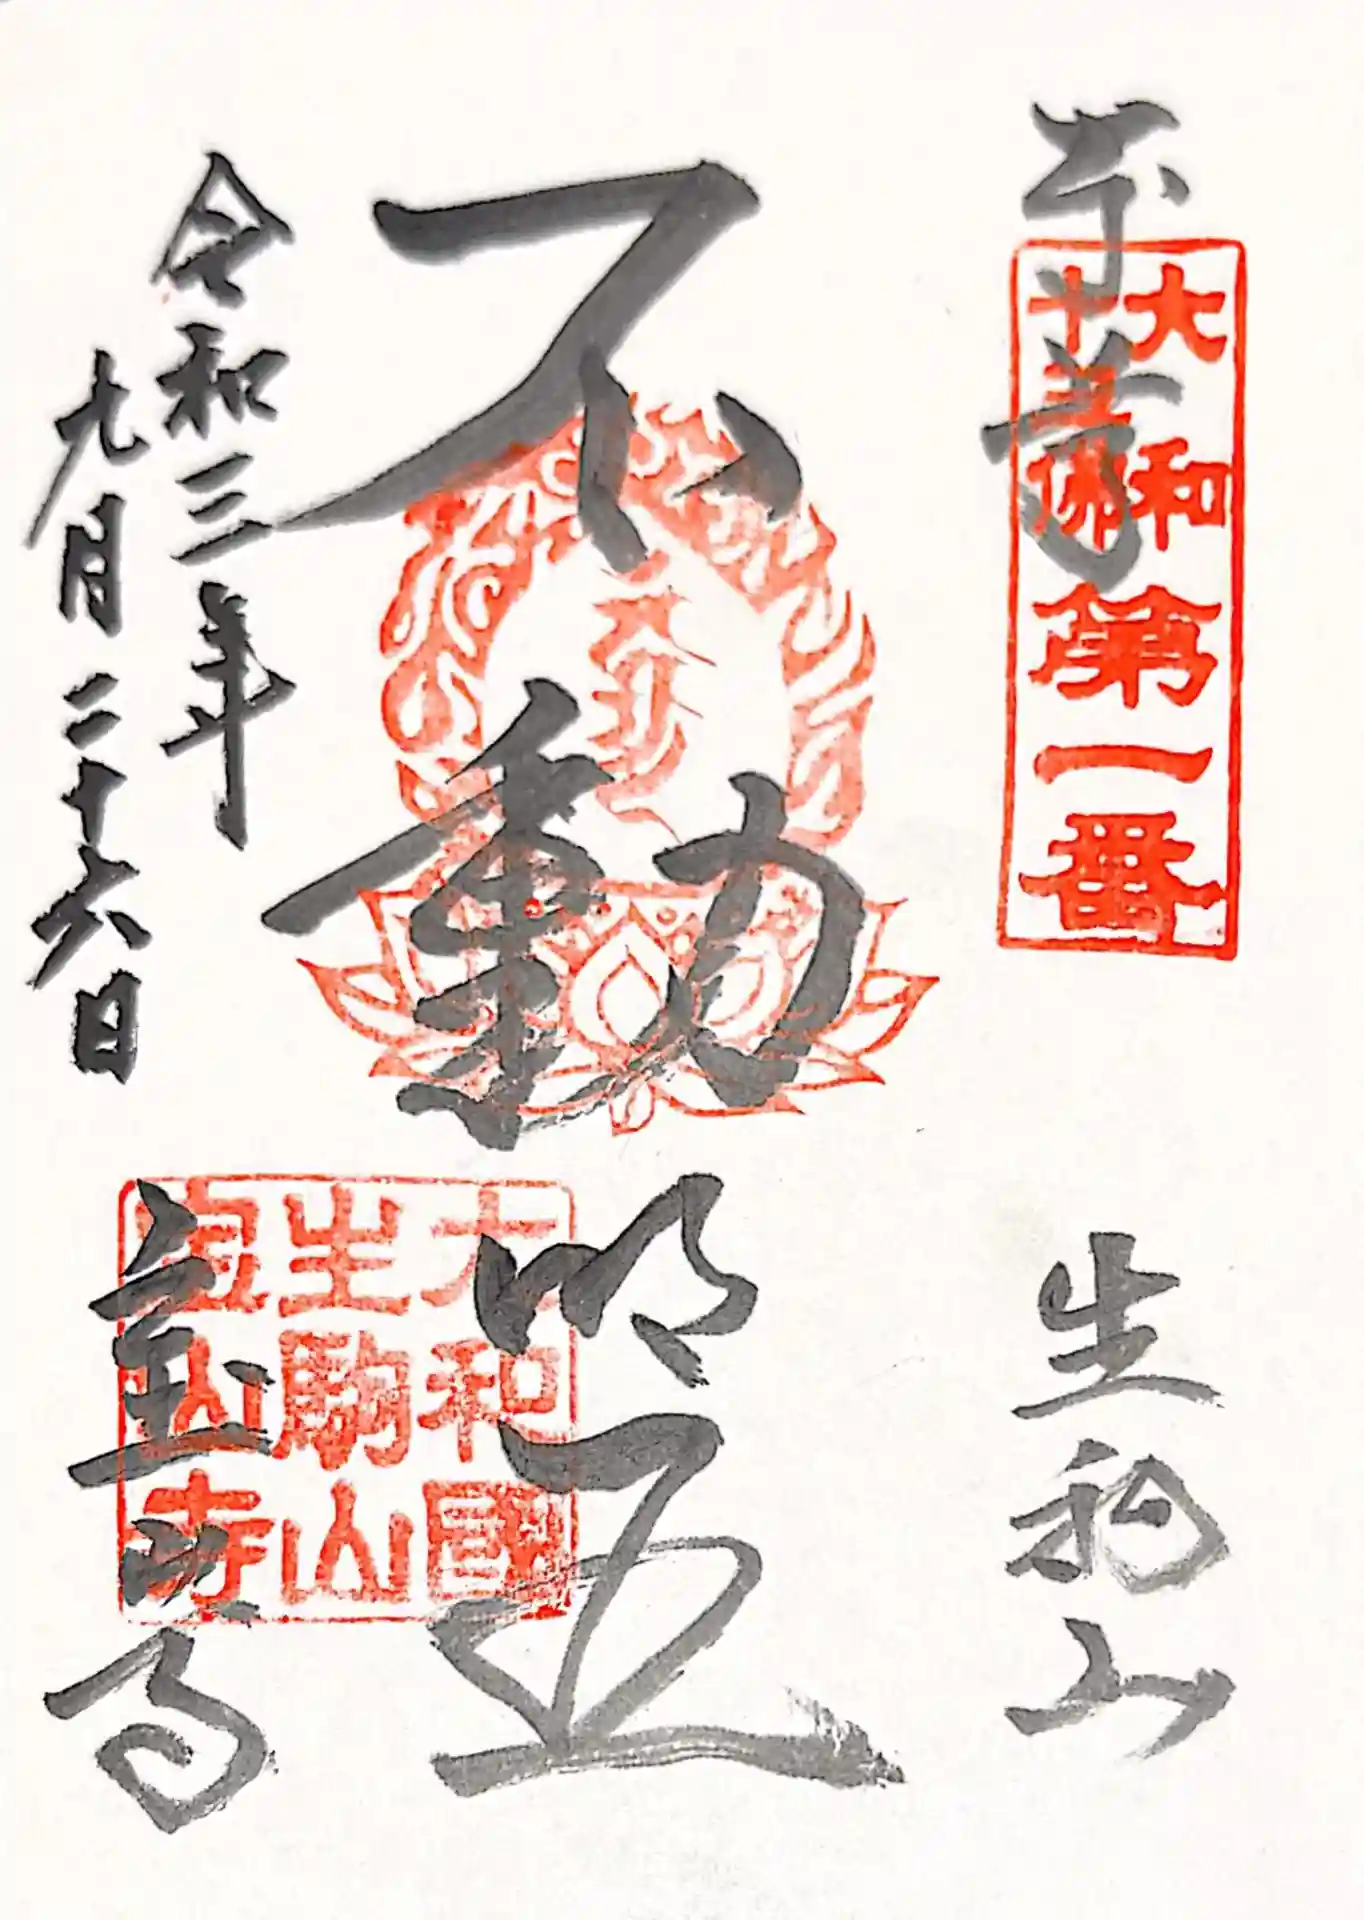 奉拝
大和
十三佛
第一番
生駒山
不動明王
大和國
生駒山
寳山寺
令和三年
九月二十六日
宝山寺